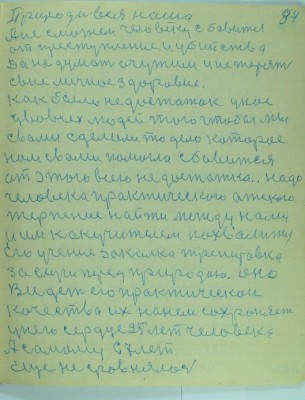 94
Природи вся наша
А не сможем человеку с бавится
от преступление и убийства
Да не думат о чужим и не терят
свое личное здоровие.
Как было недостаток у нас
у всех людей того чтобы мы
с вами сделали то дело которое
нам с вами помогла сбавится
от этого всего недостатка.. надо
человека практического атского
терпение найти между нами
и им как учителем похвалится
Его учение закалка тренировка
заслуги перед природаю. она
видет его практической
качества их на нем сохраняет
у него сердце 25 лет человека
А самому 67 лет
еще не сровнялося